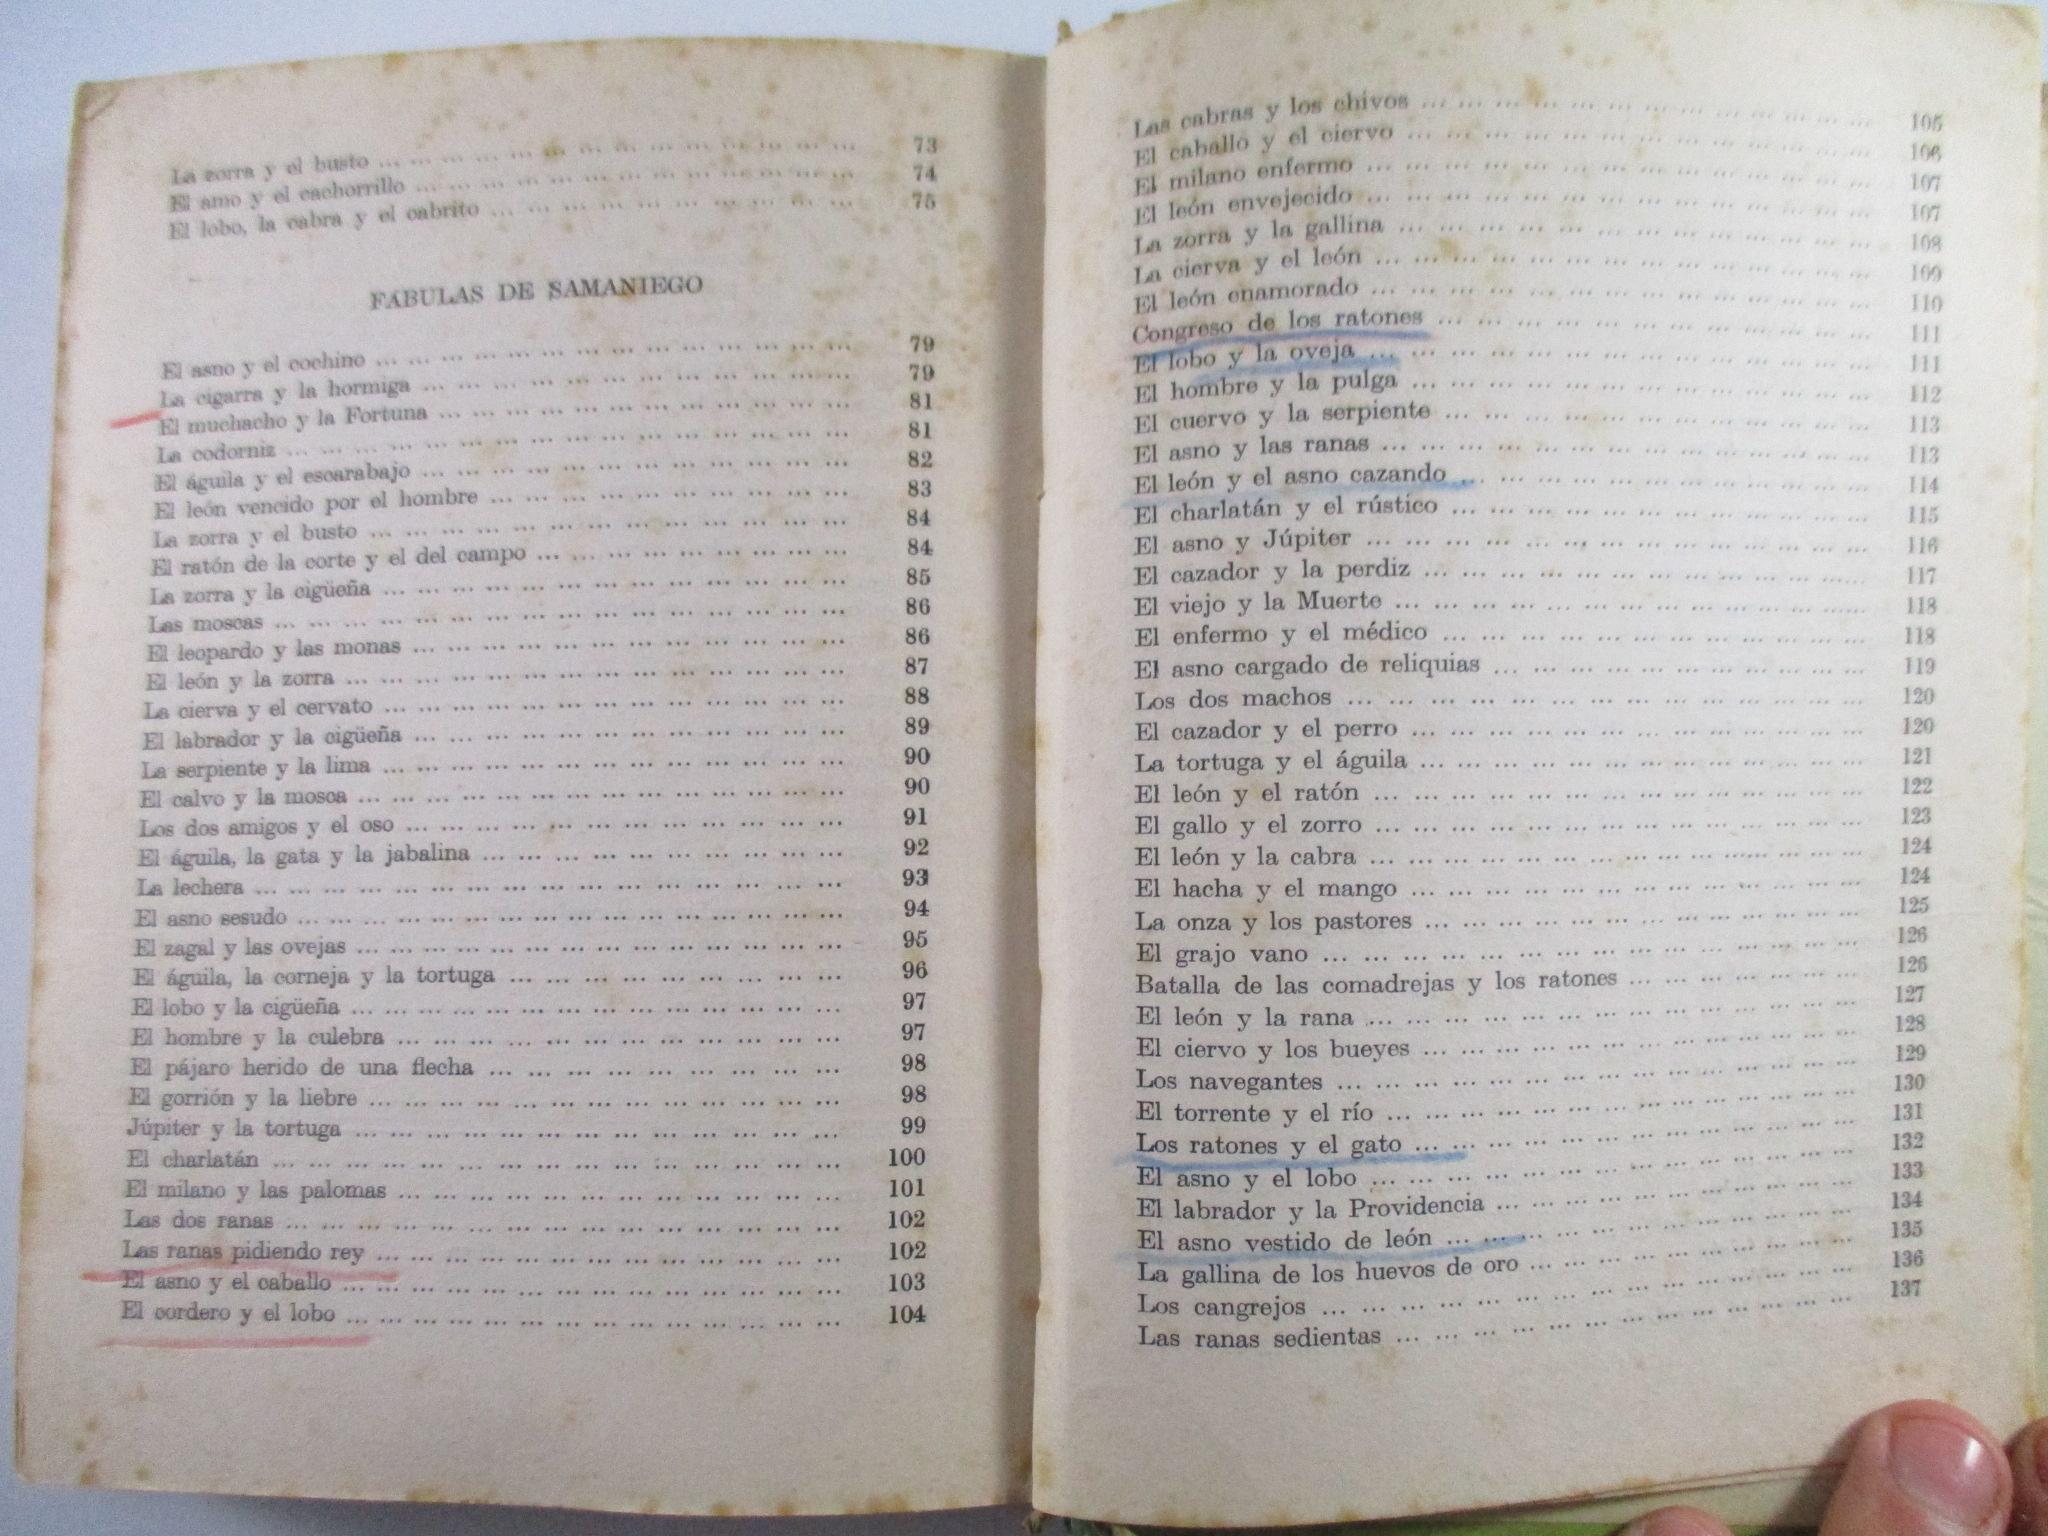 La zorra y el busto ... 73
El amo y el cachorrillo ... 74
El lobo, la cabra y el cabrito ... 75
FABULAS DE SAMANIEGO
El asno y el cochino ... 79
La cigarra y la hormiga ... 79
El muchacho y la Fortuna ... 81
La codorniz ... 81
El águila y el escarabajo ... 82
El león vencido por el hombre ... 83
La zorra y el busto ... 84
El ratón de la corte y el del campo ... 84
La zorra y la cigüeña ... 85
Las moscas ... 86
El leopardo y las monas ... 86
El león y la zorra ... 87
La cierva y el cervato ... 88
El labrador y la cigüeña ... 89
La serpiente y la lima ... 90
El calvo y la mosca ... 90
Los dos amigos y el oso ... 91
El águila, la gata y la jabalina ... 92
La lechera ... 93
El asno sesudo ... 94
El zagal y las ovejas ... 95
El águila, la corneja y la tortuga ... 96
El lobo y la cigüeña ... 97
El hombre y la culebra ... 97
El pájaro herido de una flecha ... 98
El gorrión y la liebre ... 98
Júpiter y la tortuga ... 99
El charlatán ... 100
El milano y las palomas ... 101
Las dos ranas ... 102
Las ranas pidiendo rey ... 102
El asno y el caballo ... 103
El cordero y el lobo ... 104
Las cabras y los chivos ... 105
El caballo y el ciervo ... 106
El milano enfermo ... 107
El león envejecido ... 107
La zorra y la gallina ... 108
La cierva y el león ... 109
El león enamorado ... 110
Congreso de los ratones ... 111
El lobo y la oveja ... 111
El hombre y la pulga ... 112
El cuervo y la serpiente ... 113
El asno y las ranas ... 113
El león y el asno cazando ... 114
El charlatán y el rústico ... 115
El asno y Júpiter ... 116
El cazador y la perdiz ... 117
El viejo y la Muerte ... 118
El enfermo y el médico ... 118
El asno cargado de reliquias ... 119
Los dos machos ... 120
El cazador y el perro ... 120
La tortuga y el águila ... 121
El león y el ratón ... 122
El gallo y el zorro ... 123
El león y la cabra ... 124
El hacha y el mango ... 124
La onza y los pastores ... 125
El grajo vano ... 126
Batalla de las comadrejas y los ratones ... 126
El león y la rana ... 127
El ciervo y los bueyes ... 128
Los navegantes ... 129
El torrente y el río ... 130
Los ratones y el gato ... 131
El asno y el lobo ... 132
El labrador y la Providencia ... 133
El asno vestido de león ... 134
La gallina de los huevos de oro ... 135
Los cangrejos ... 136
Las ranas sedientas ... 137